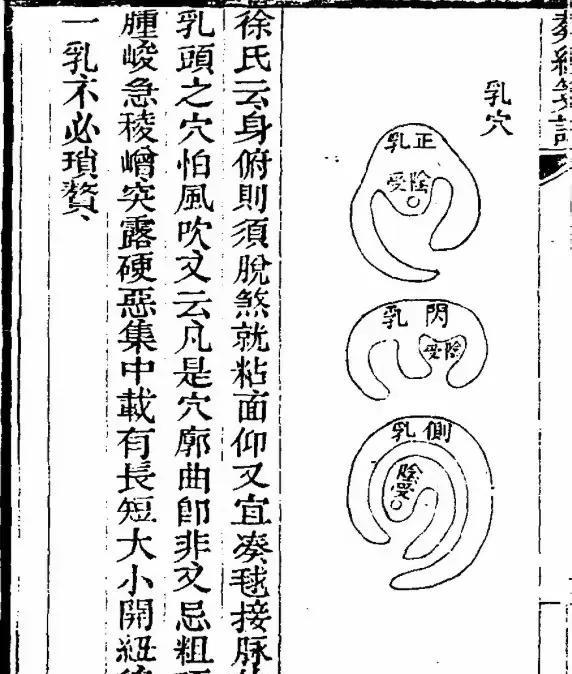 乳穴
正乳
受陰
閃乳
受陰
側乳
陰受
徐氏云身俯則須脫煞就粘面仰又宜湊毬接脉
乳頭之穴怕風吹又云凡是穴廓曲卽非又忌粗
腫峻急稜嶒突露硬惡集中載有長短大小開紐
一乳不必瑣贅